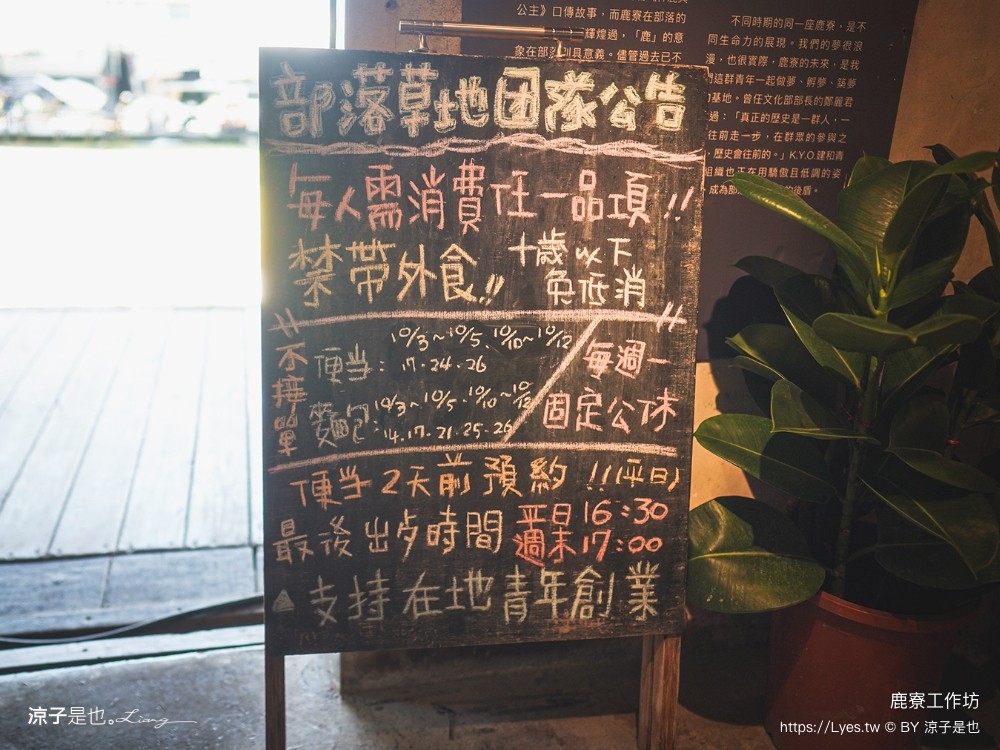 公主》口傳故事，而鹿寮在部落的
輝煌過，「鹿」的意
象在部落別具意義。儘管過去已不
不同時期的同一座鹿寮，是不
同生命力的展現。我們的夢很浪
漫，也很實際，鹿寮的未來，是我
們這群青年一起做夢、孵夢、築夢
的基地。曾任文化部部長的鄭麗君
過：「真正的歷史是一群人，一
往前走一步，在群眾的參與之
，歷史會往前的。」K.Y.O.建和青
組織也正在用驕傲且低調的姿
，成為部 的後盾。
部落草地团隊公告
每人需消費任一品項!!
禁帶外食!!
十歲以下
免低消
不接單
便当：10/3~10/5、10/10~10/12
17.24.26
麵包：10/3~10/5、10/10~10/12
14.17.21.25.26
每週一
固定公休
便当2天前預約!!(平日)
最後出歺時間 平日16:30
週末17:00
支持在地青年創業
涼子是也。Liang
鹿寮工作坊
https://Lyes.tw © BY 涼子是也